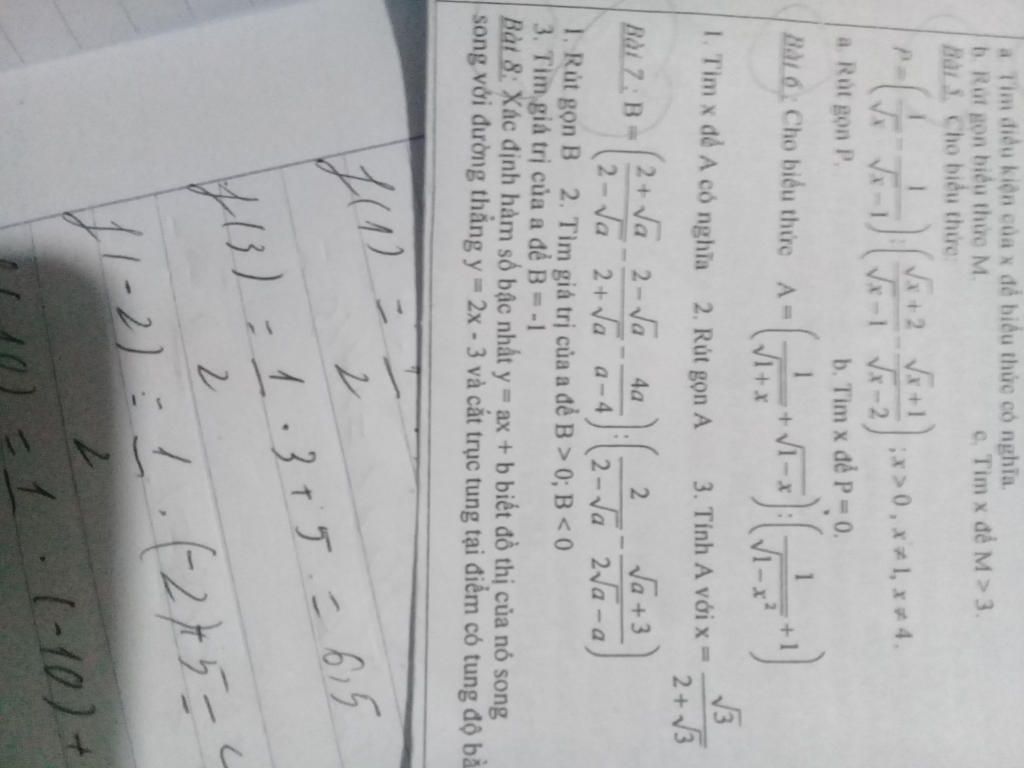 a. Tìm điều kiện của x để biểu thức có nghĩa.
b. Rút gọn biểu thức M. c. Tìm x để M > 3.
Bài 5. Cho biểu thức:
P = (1/√x - 1/(√x-1)) : ((√x+2)/(√x-1) - (√x+1)/(√x-2)) ; x > 0 , x ≠ 1, x ≠ 4.
a. Rút gọn P. b. Tìm x để P = 0.
Bài 6 : Cho biểu thức A = (1/√(1+x) + √(1-x)) : (1/√(1-x²) + 1)
1. Tìm x để A có nghĩa 2. Rút gọn A 3. Tính A với x = √3/(2+√3)
Bài 7 : B = ((2+√a)/(2-√a) - (2-√a)/(2+√a) - 4a/(a-4)) : (2/(2-√a) - (√a+3)/(2√a-a))
1. Rút gọn B 2. Tìm giá trị của a để B > 0; B < 0
3. Tìm giá trị của a để B = -1
Bài 8: Xác định hàm số bậc nhất y = ax + b biết đồ thị của nó song
song với đường thẳng y = 2x - 3 và cắt trục tung tại điểm có tung độ
f(1) =
2
f(3) = 1/2 . 3 + 5 = 6,5
f(-2) = 1/2 . (-2) + 5 =
(-10) = 1 . (-10) +